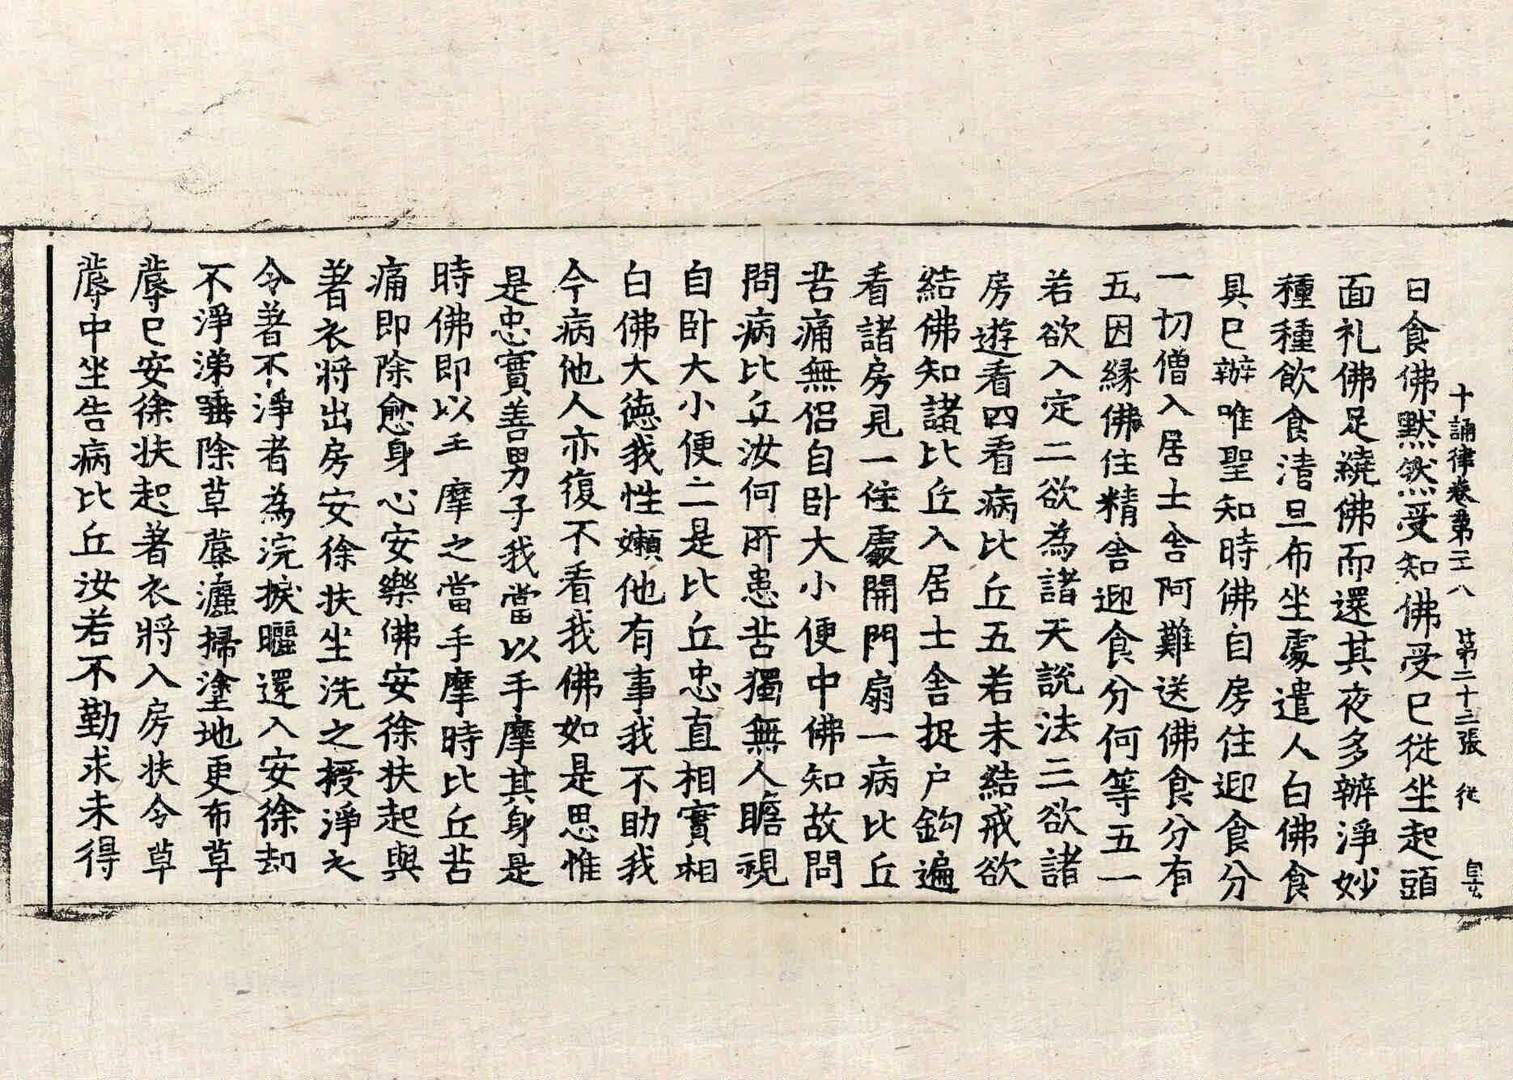 十誦律卷第二八 第二十二張 従
日食佛默然受知佛受已従坐起頭
面礼佛足繞佛而還其夜多辦淨妙
種種飲食清旦布坐處遣人白佛食
具已辦唯聖知時佛自房住迎食分
一切僧入居士舍阿難送佛食分有
五因縁佛住精舍迎食分何等五一
若欲入定二欲為諸天説法三欲諸
房遊看四看病比丘五若未結戒欲
結佛知諸比丘入居士舍捉户鈎遍
看諸房見一住處開門扇一病比丘
苦痛無侣自卧大小便中佛知故問
問病比丘汝何所患苦獨無人瞻視
自卧大小便二是比丘忠直相實相
白佛大徳我性嬾他有事我不助我
今病他人亦復不看我佛如是思惟
是忠實善男子我當以手摩其身是
時佛即以手摩之當手摩時比丘苦
痛即除愈身心安樂佛安徐扶起與
著衣將出房安徐扶坐洗之授淨衣
令著不淨者為浣捩曬還入安徐却
不淨涕唾除草蓐灑掃塗地更布草
蓐已安徐扶起著衣將入房扶令草
蓐中坐告病比丘汝若不勤求未得